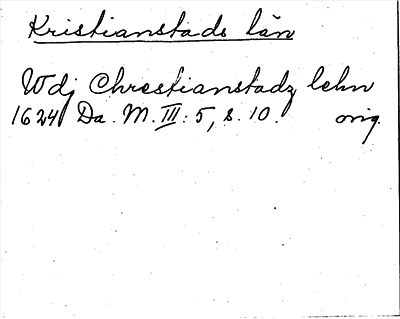 Kristianstads län
Wdj Chrestianstadz lehn
1624 Da. M. III: 5, s. 10. orig.